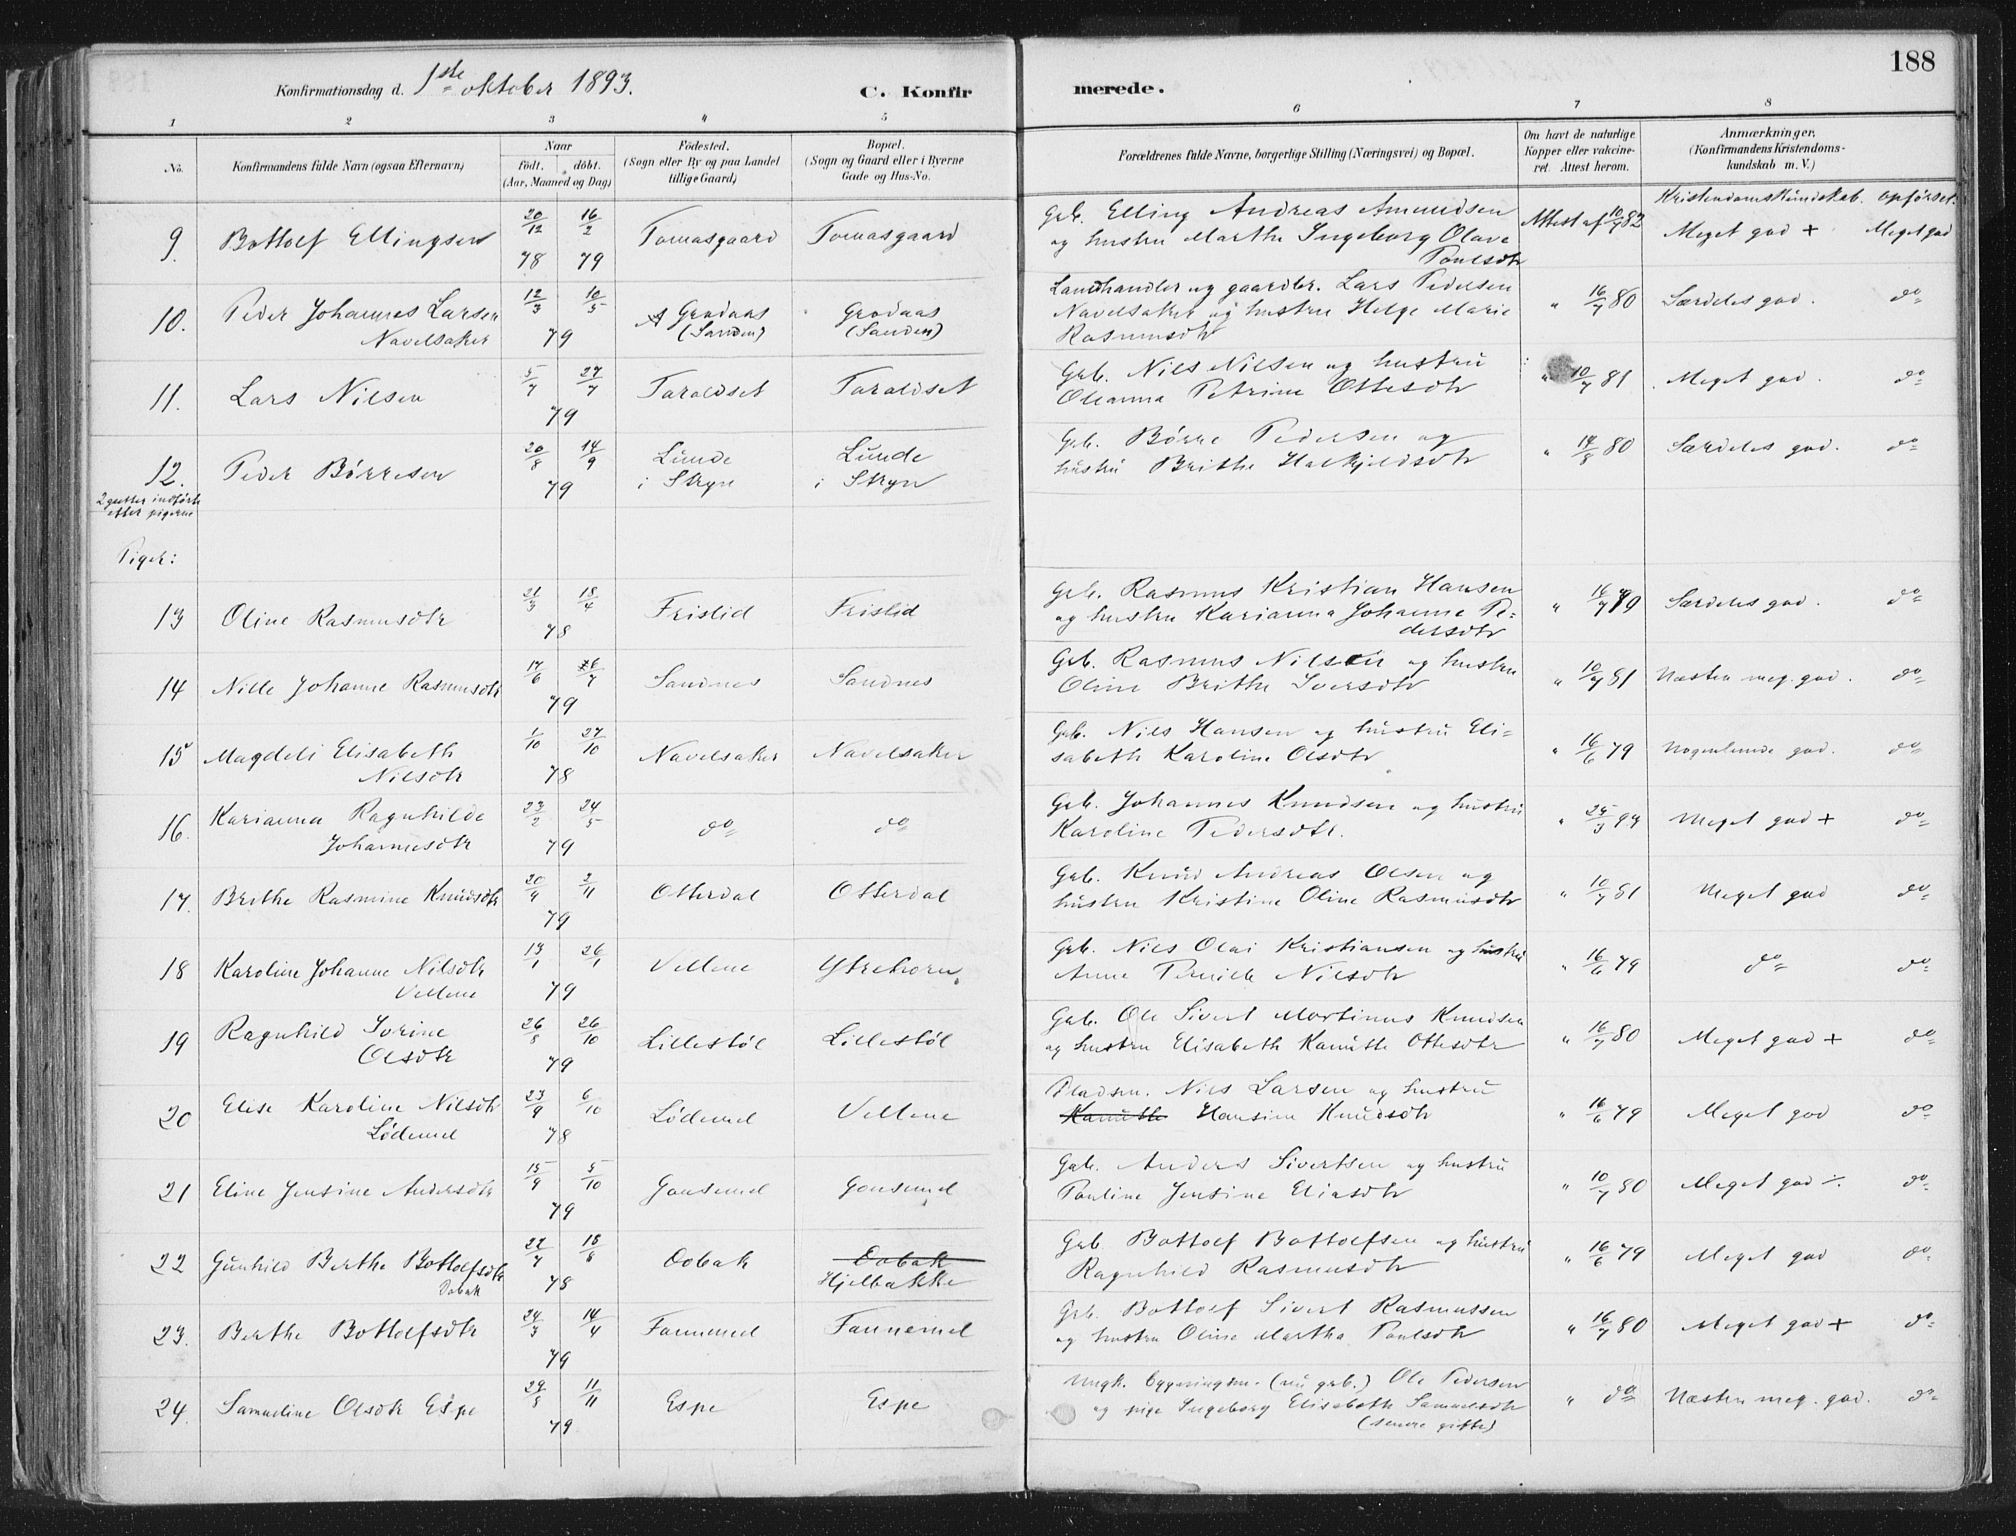 188
Konfirmationsdag d. 1ste oktober 1893.
C. Konfirmerede.
1 2 3 4 5 6 7 8
No.
Konfirmandens fulde Navn (ogsaa Efternavn)
Naar
födt. döbt.
(Aar, Maaned og Dag)
Födested.
(Sogn eller By og paa Landet
tillige Gaard)
Bopæl.
(Sogn og Gaard eller i Byerne
Gade og Hus-No.
Forældrenes fulde Navne, borgerlige Stilling (Næringsvei) og Bopæl.
Om havt de naturlige
Kopper eller vakcine-
ret. Attest herom.
Anmærkninger.
(Konfirmandens Kristendoms-
kundskab m. V.)
Kristendomskundskab. Opførsel.
9. Bottolf Ellingsen 20/12 78 16/2 79 Tomasgaard Tomasgaard Grb. Elling Andreas Amundsen Attest af 10/7 82 Meget god + Meget god
og hustru Marthe Ingeborg Olave
Poulsdtr
10. Peder Johannes Larsen 12/3 10/5 79 Grodaas Grodaas Landhandler og gaardbr. Lars Pedersen " 16/7 80 Særdeles god. do
Navelsaker (Sanden) (Sanden) Navelsaker og hustru Helge Marie
Rasmusdtr
11. Lars Nilsen 5/7 27/7 79 Taraldset Taraldset Grb. Nils Nilsen og hustru " 10/7 81 Meget god. do
Oleanna Petrine Ottesdtr
12. Peder Børresen 20/8 14/9 79 Lunde Lunde Grb. Børre Pedersen og " 14/8 80 Særdeles god. do
i Stryn i Stryn hustru Brithe Halkjeldsdtr
2 gutter indført
efter pigerne
Piger:
13 Oline Rasmusdtr 21/3 18/4 78 Frislid Frislid Grb. Rasmus Kristian Hansen " 16/7 do
og hustru Karianna Johanne Pe-
dersdtr
14 Nille Johanne Rasmusdtr 17/6 /7 79 Sandnes Sandnes Grb. Rasmus Nilsen og hustru " 10/7 81 Næsten meg. god. do
Oline Brithe Iversdtr
15 Magdeli Elisabeth 1/10 27/10 78 Navelsaker Navelsaker Grb. Nils Hansen og hustru Eli- " 16/6 79 Nogenlunde god. do
Nilsdtr sabeth Karoline Olsdtr
16. Karianna Ragnhilde 23/2 24/5 79 do do Grb. Johannes Knudsen og hustru " 25/3 94 Meget god + do
Johannesdtr Karoline Pedersdtr.
17. Brithe Rasmine Knudsdtr 20/9 2/11 79 Otterdal Otterdal Grb. Knud Andreas Olsen og " 10/7 81 Meget god do
hustru Kristine Oline Rasmusdtr
18 Karoline Johanne Nilsdtr 13/1 26/1 79 Vellene Ytrehorn. Grb. Nils Olai Kristiansen og hustru " 16/6 79 do do
Vellene Anne Pernille Nilsdtr
19 Ragnhild Iorine 26/8 26/10 79 Lillestöl Lillestöl Grb. Ole Sivert Martinus Knudsen " 16/7 80 Meget god + do
Olsdtr og hustru Elisabeth Kanutte Ottesdtr
20 Elise Karoline Nilsdtr 23/9 6/10 78 Lödemel Vellene Pladsm. Nils Larsen og hustru " 16/6 79 Meget god do
Lödemel Kanutte Hansine Knudsdtr
21 Eline Jensine Andersdtr 15/9 5/10 79 Gausemel Gausemel Grb. Anders Sivertsen og hustru " 10/7 80 Meget god ÷. do
Pauline Jensine Eliasdtr
22 Gunhild Berthe Bottolfsdtr 22/7 18/8 78 Dobak Dobak Grb. Bottolf Bottolfsen og hustru " 16/6 79 Meget god do
Dobak Hjelbakke Ragnhild Rasmusdtr
23. Berthe Bottolfsdtr 24/3 14/4 79 Fannemel Fannemel Grb. Bottolf Sivert Rasmussen " 16/7 80 Meget god + do
og hustru Oline Martha Poulsdtr
24. Samueline Olsdtr Espe 29/8 11/11 79 Espe Espe Ungk. bygningsm. (nu grb.) Ole Pedersen " do Næsten meg. god. do
og pige Ingeborg Elisabeth Samuelsdtr
(senere gifte)